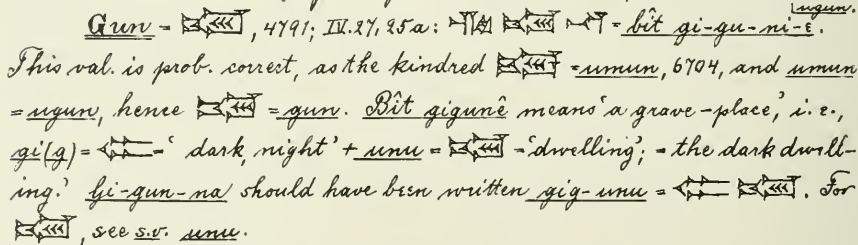 ugun.
Gun = , 4791; IV. 27, 25a: = bît gi-gu-ni-e.
This val. is prob. correct, as the kindred = umun, 6704, and umun
= ugun, hence = gun. Bît gigunê means 'a grave-place,' i. e.,
gi(g) = = 'dark, night' + unu = = 'dwelling'; = the dark dwell-
ing.' Gi-gun-na should have been written gig-unu = . For
, see s.v. unu.